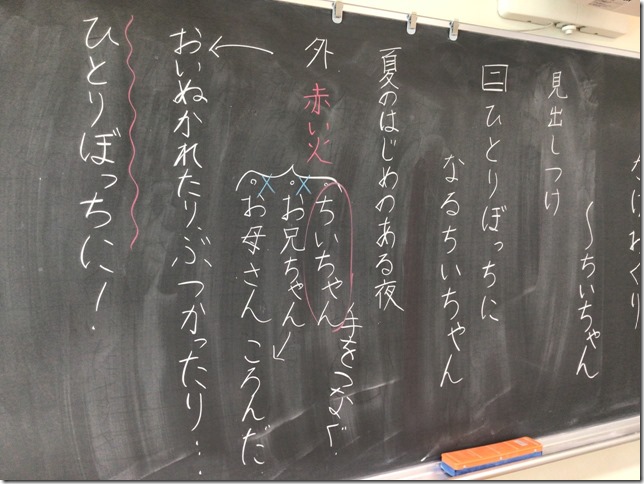 かげおくり
〜ちいちゃん
見出しつけ
二 ひとりぼっちに
なるちいちゃん
夏のはじめのある夜
外 赤い火
手をつなぐ
ちいちゃん
お兄ちゃん
お母さん ころんだ
おいぬかれたり、ぶつかったり…
ひとりぼっちに!